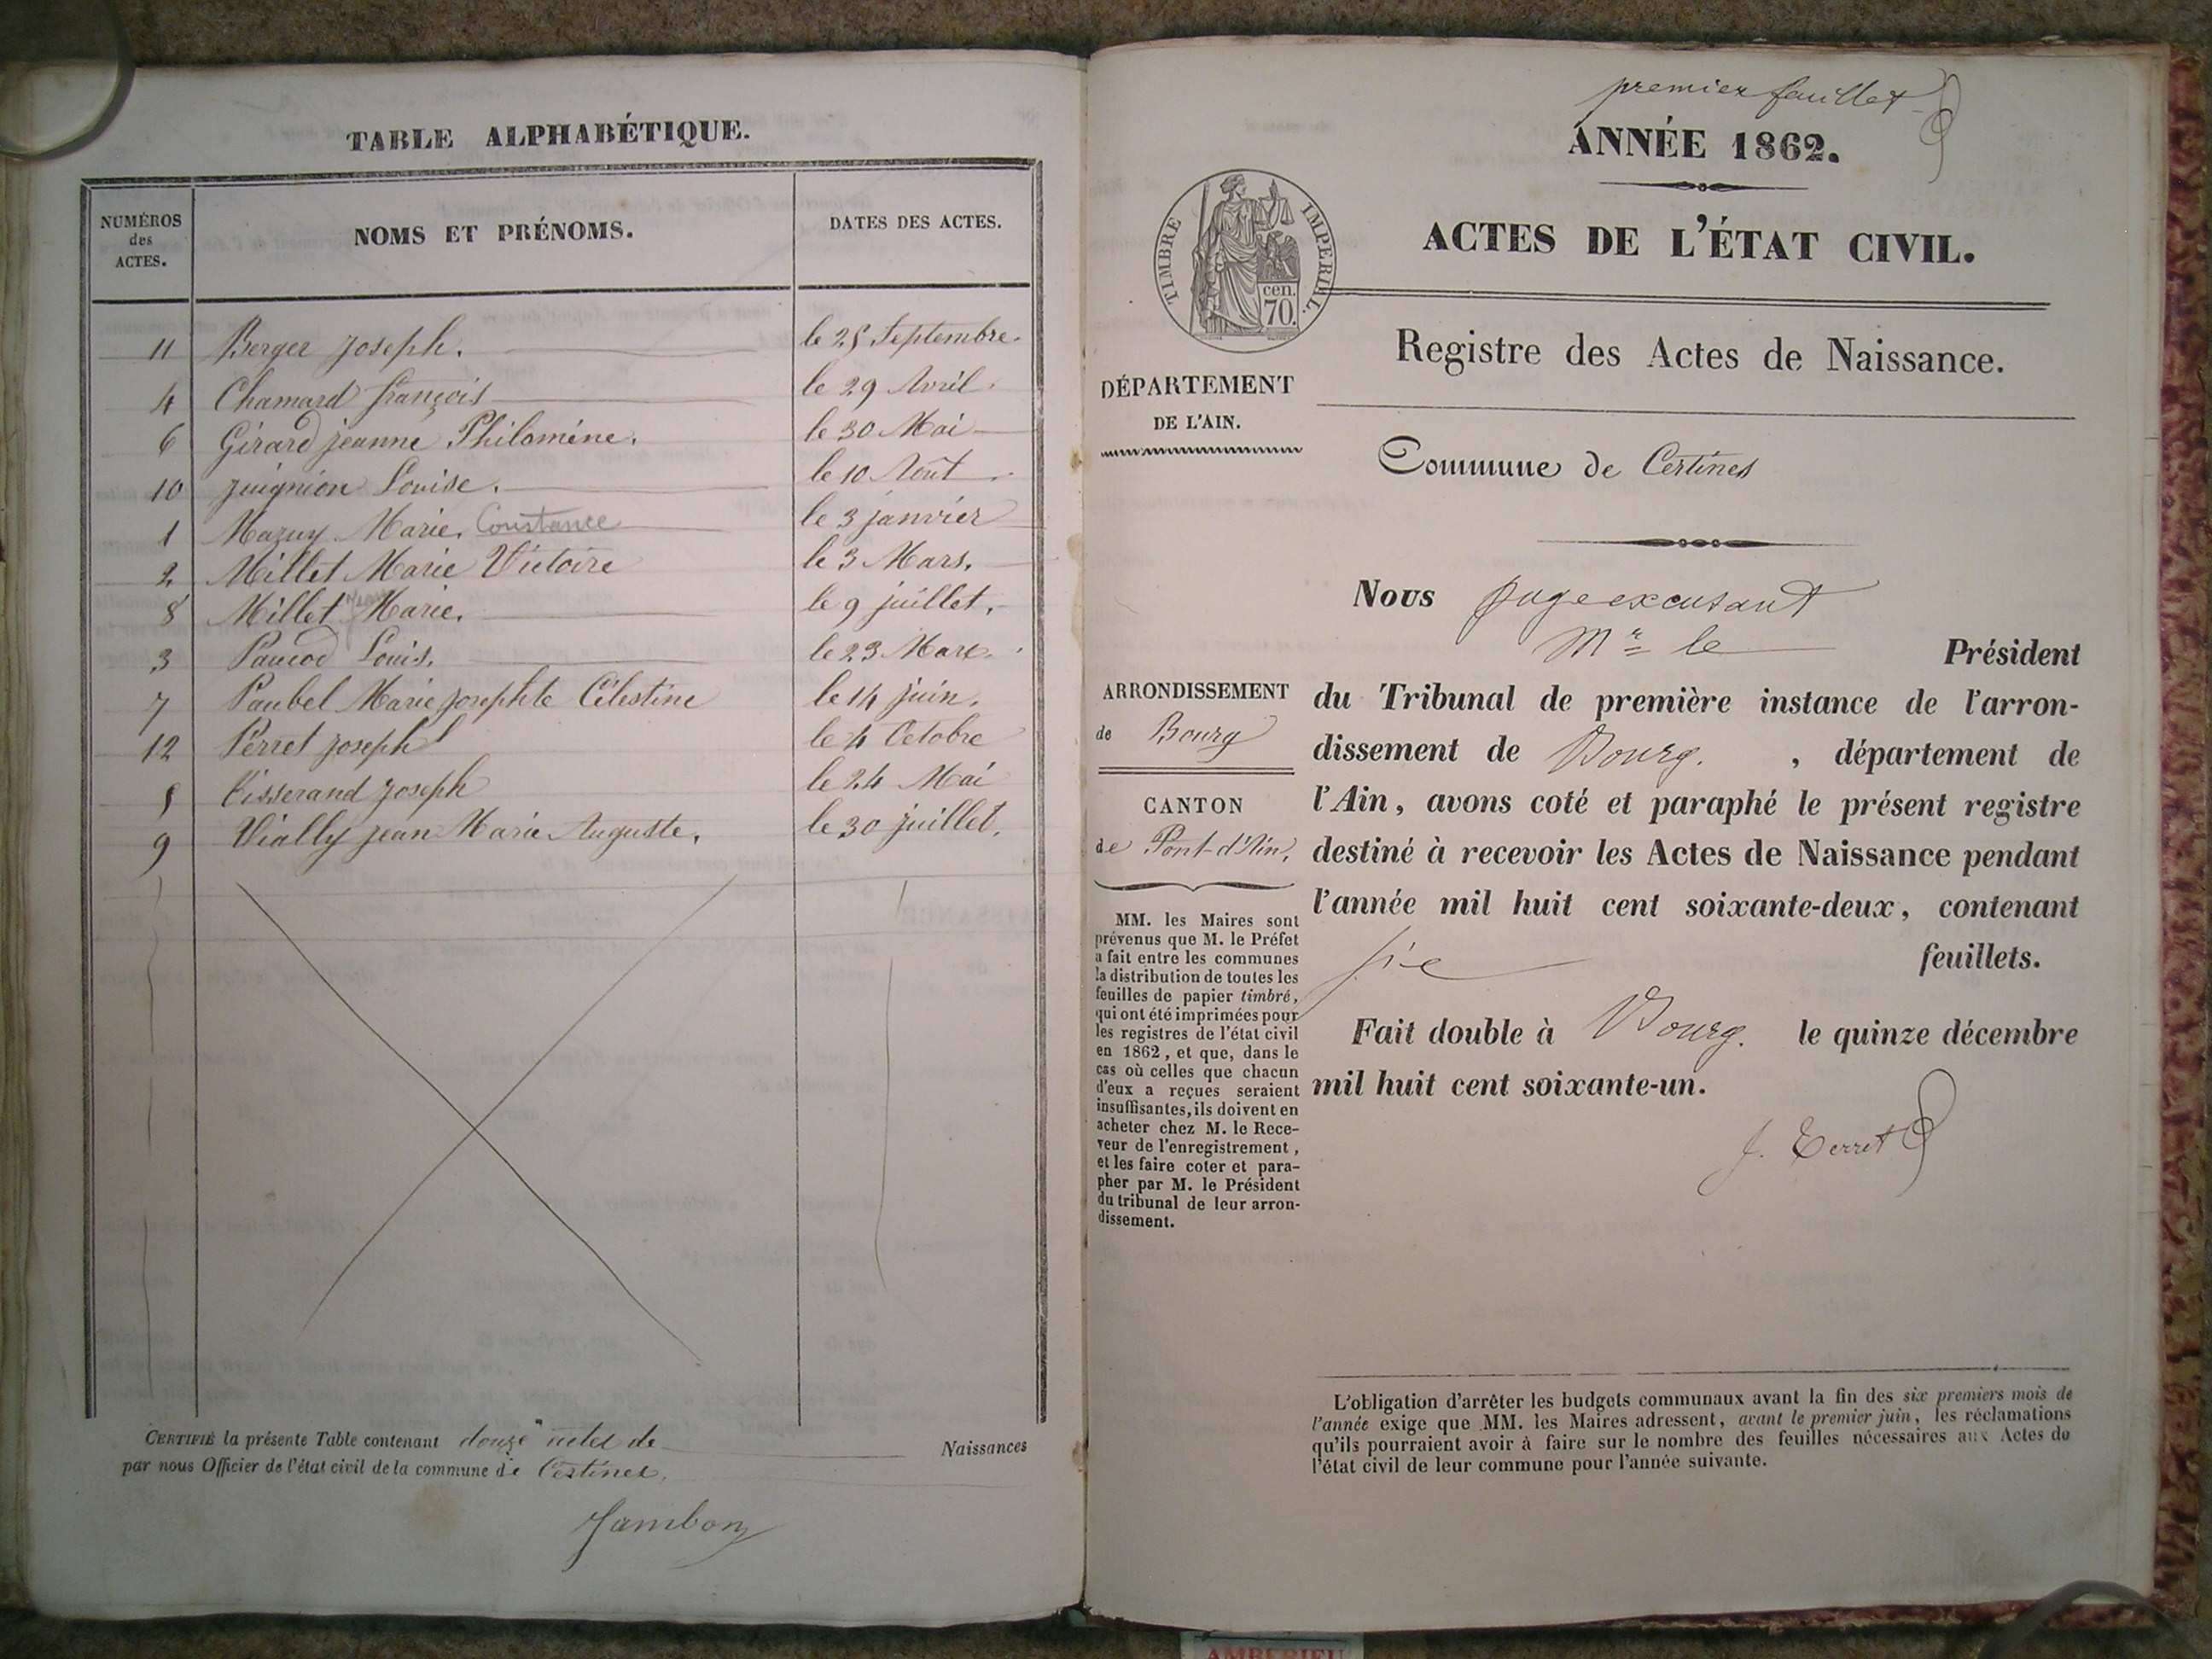 TABLE ALPHABÉTIQUE.
NUMÉROS des ACTES.
NOMS ET PRÉNOMS.
DATES DES ACTES.
11 Berger Joseph. le 25 Septembre.
4 Chamard françois le 29 Avril.
6 Girard jeanne Philomène. le 30 Mai
10 juignion Louise. le 10 Août
1 Mazuy Marie. Constance le 3 janvier
2 Millet Marie Victoire le 3 Mars.
8 Millet Marie. le 9 juillet.
3 Paucod Louis. le 23 Mars.
7 Paubel Marie josephte Célestine le 14 juin.
12 Perret joseph le 4 Octobre
5 Tisserand joseph le 24 Mai
9 Vially jean Marie Auguste. le 30 juillet.
CERTIFIÉ la présente Table contenant douze actes de Naissances
par nous Officier de l'état civil de la commune de Certines.
Jambon
premier feuillet
ANNÉE 1862.
ACTES DE L'ÉTAT CIVIL.
TIMBRE IMPERIAL.
cen.
70.
Registre des Actes de Naissance.
DÉPARTEMENT
DE L'AIN.
Commune de Certines
Nous juge excusant
Mr le Président
ARRONDISSEMENT
de Bourg
CANTON
de Pont-d'Ain.
du Tribunal de première instance de l'arron-
dissement de Bourg. , département de
l'Ain, avons coté et paraphé le présent registre
destiné à recevoir les Actes de Naissance pendant
l'année mil huit cent soixante-deux, contenant
six feuillets.
Fait double à Bourg. le quinze décembre
mil huit cent soixante-un.
J. Terret
MM. les Maires sont
prévenus que M. le Préfet
a fait entre les communes
la distribution de toutes les
feuilles de papier timbré,
qui ont été imprimées pour
les registres de l'état civil
en 1862, et que, dans le
cas où celles que chacun
d'eux a reçues seraient
insuffisantes, ils doivent en
acheter chez M. le Rece-
veur de l'enregistrement,
et les faire coter et para-
pher par M. le Président
du tribunal de leur arron-
dissement.
L'obligation d'arrêter les budgets communaux avant la fin des six premiers mois de
l'année exige que MM. les Maires adressent, avant le premier juin, les réclamations
qu'ils pourraient avoir à faire sur le nombre des feuilles nécessaires aux Actes de
l'état civil de leur commune pour l'année suivante.
AMBERIEU